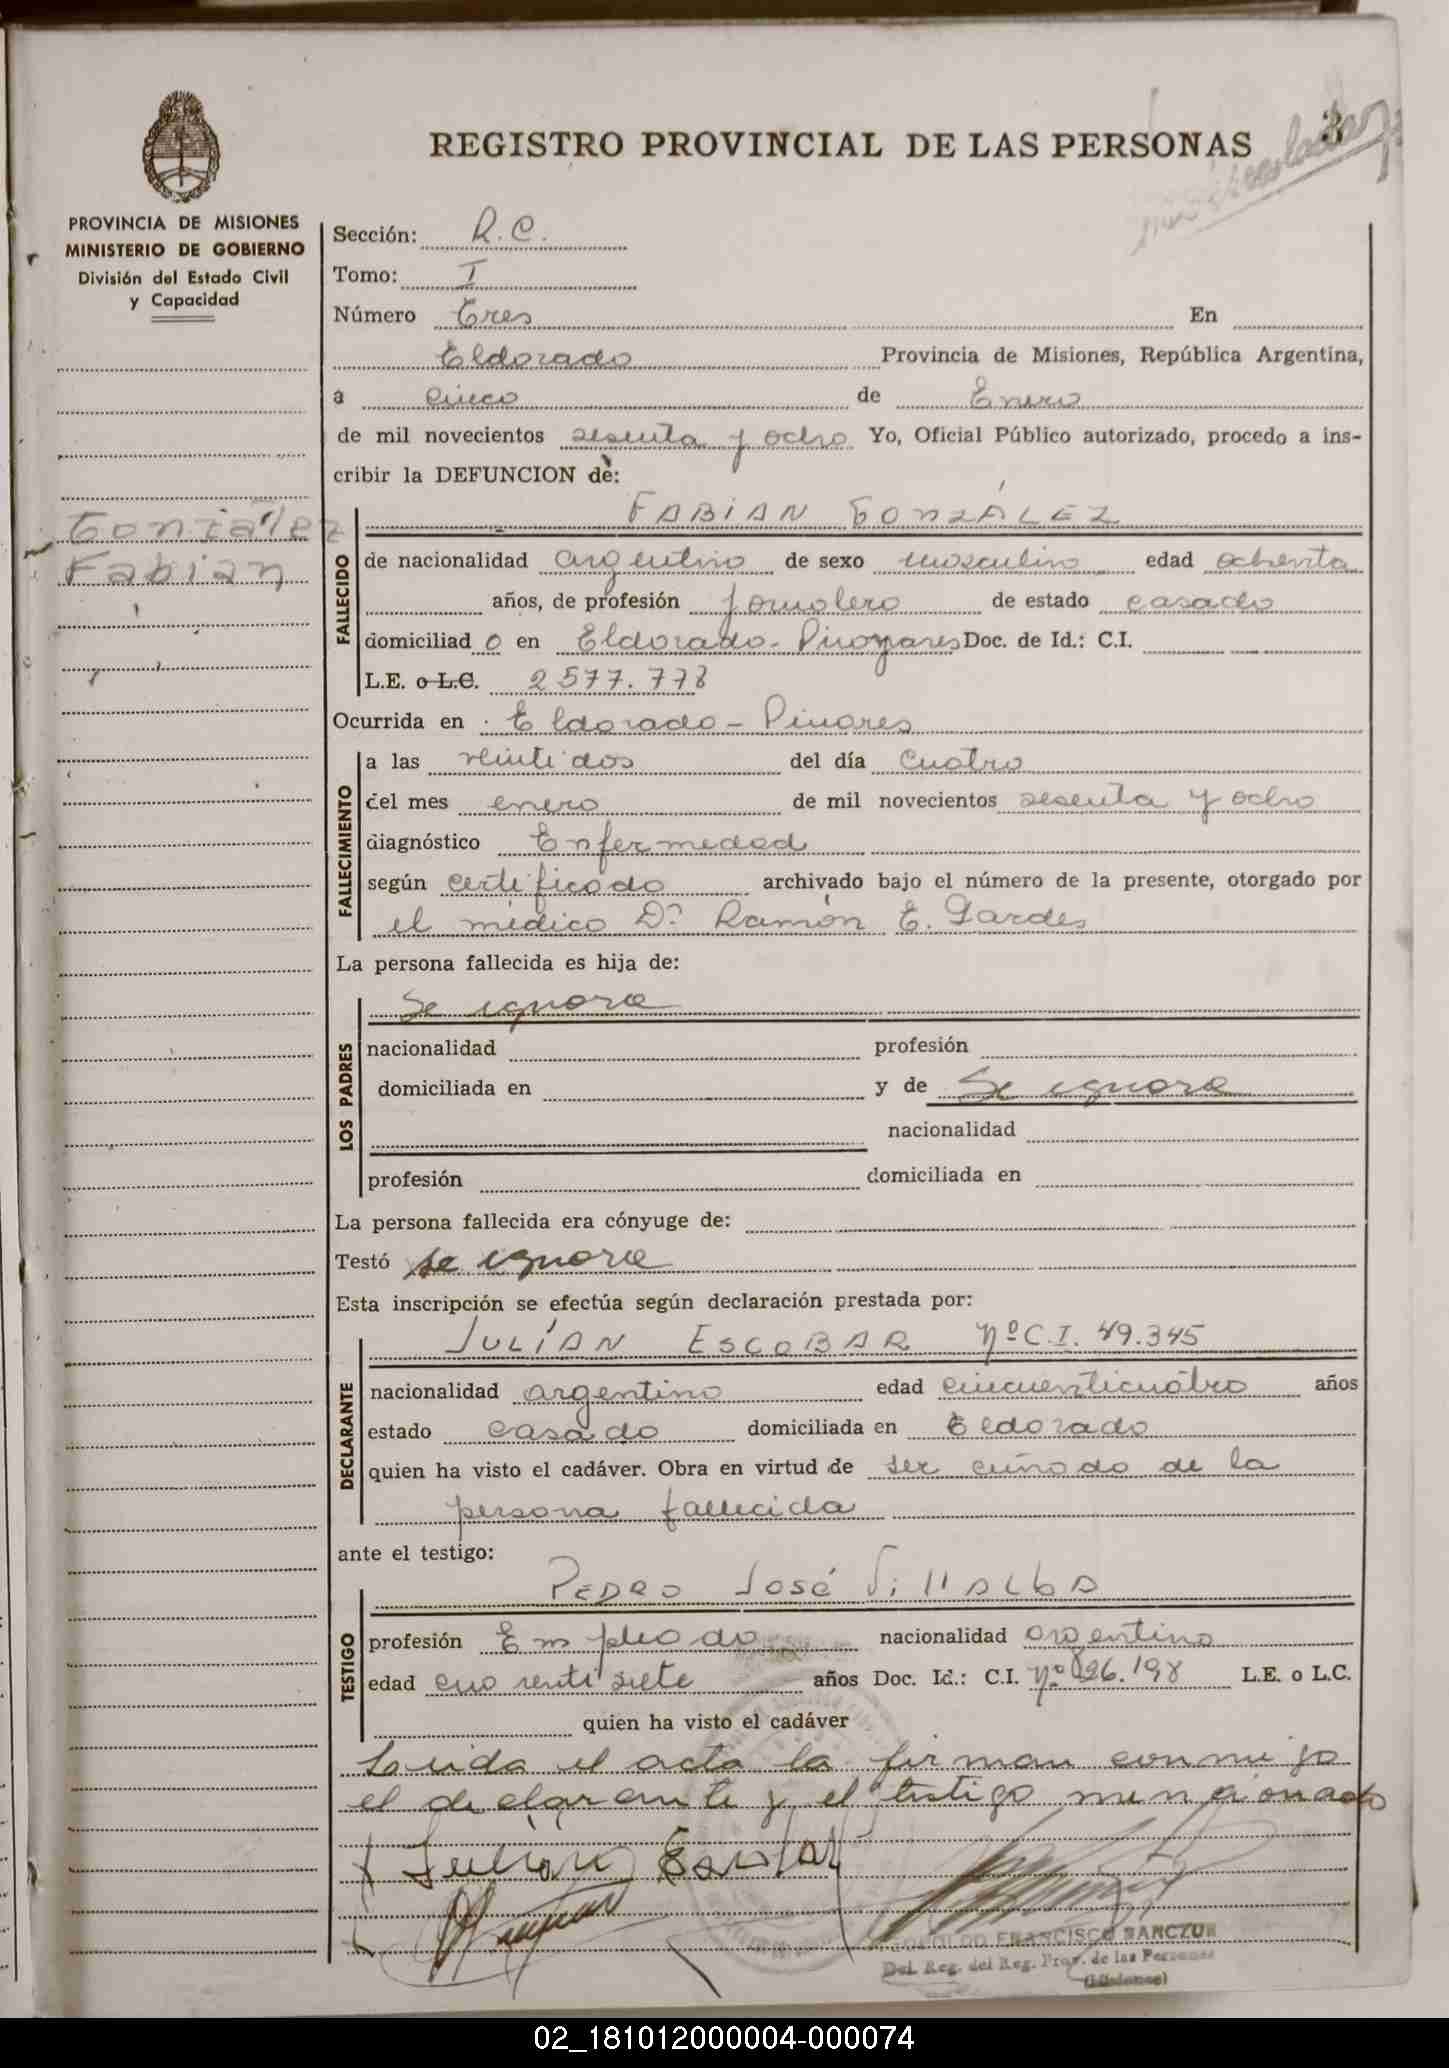 3
REGISTRO PROVINCIAL DE LAS PERSONAS
PROVINCIA DE MISIONES
MINISTERIO DE GOBIERNO
División del Estado Civil
y Capacidad
Sección: R.C.
Tomo: I
Número tres En
Eldorado Provincia de Misiones, República Argentina,
a cinco de Enero
de mil novecientos sesenta y ocho Yo, Oficial Público autorizado, procedo a ins-
cribir la DEFUNCION de:
González
Fabian
FALLECIDO
FABIAN GONZÁLEZ
de nacionalidad argentino de sexo masculino edad ochenta
años, de profesión jornalero de estado casado
domiciliad o en Eldorado - Doc. de Id.: C.I.
L.E. o L.C. 2577.778
Ocurrida en Eldorado - Pinares
FALLECIMIENTO
a las veintidos del día cuatro
del mes enero de mil novecientos sesenta y ocho
diagnóstico Enfermedad
según certificado archivado bajo el número de la presente, otorgado por
el médico Dr. Ramón E. Gardes
La persona fallecida es hija de:
LOS PADRES
Se ignora
nacionalidad profesión
domiciliada en y de Se ignora
nacionalidad
profesión domiciliada en
La persona fallecida era cónyuge de:
Testó se ignora
Esta inscripción se efectúa según declaración prestada por:
DECLARANTE
JULIÁN ESCOBAR Nº C.I. 49.345
nacionalidad argentino edad cincuenticuatro años
estado casado domiciliada en Eldorado
quien ha visto el cadáver. Obra en virtud de ser cuñado de la
persona fallecida
ante el testigo:
TESTIGO
PEDRO JOSÉ VillALbA
profesión Empleado nacionalidad argentino
edad cuarentisiete años Doc. Id.: C.I. Nº 126.198 L.E. o L.C.
quien ha visto el cadáver
Leida el acta la firman conmigo
el declarante y el testigo mencionado
Julian Escobar
FRANCISCO HANCZUR
Del. Reg. del Reg. Prov. de las Personas
(Misiones)
02_181012000004-000074